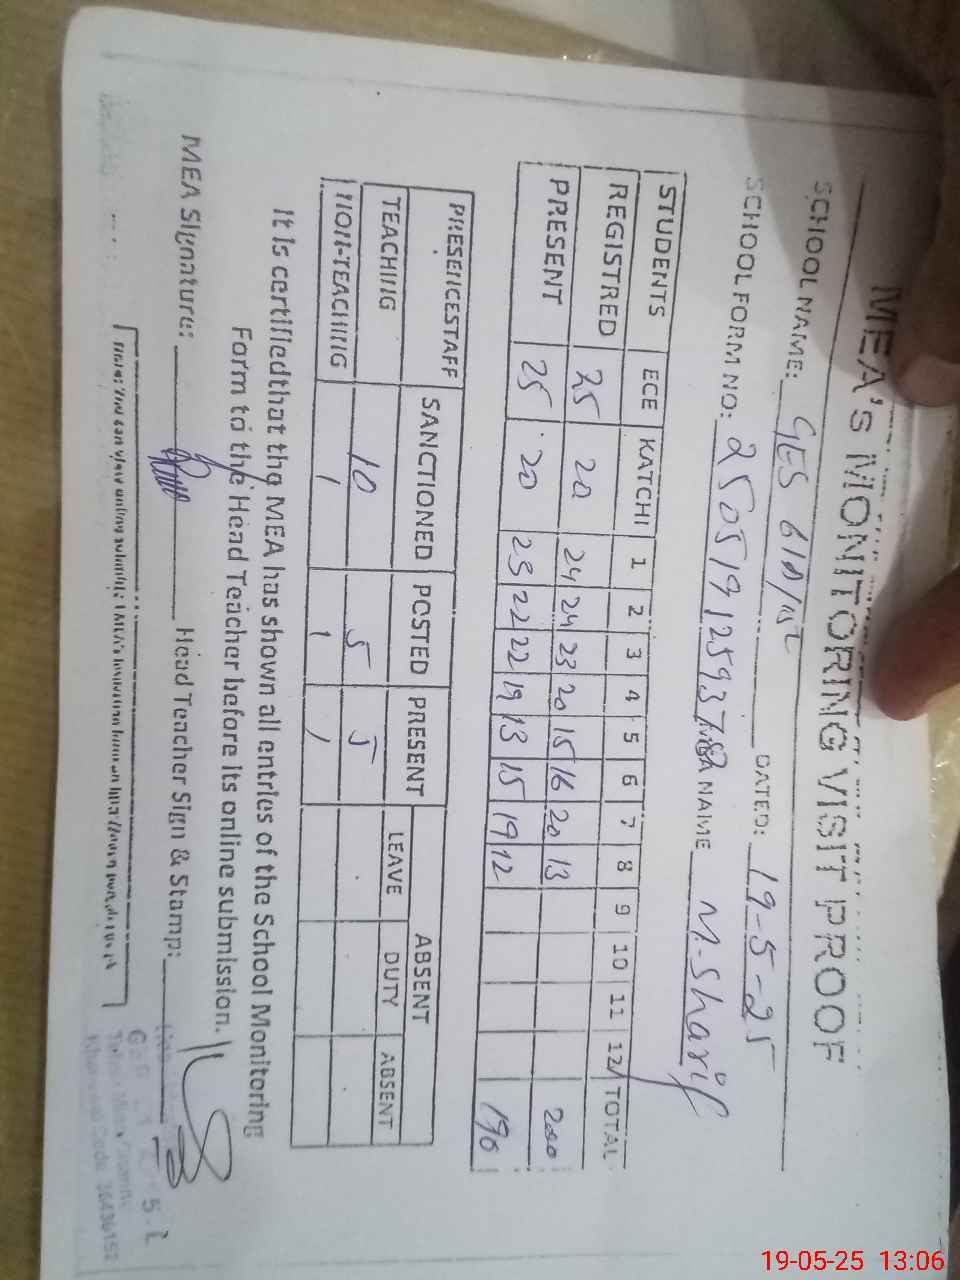 MEA's MONITORING VISIT PROOF
SCHOOL NAME: GES
SCHOOL FORM NO: DATED: 19-5-25
MEA NAME M. Sharif
STUDENTS ECE KATCHI 1 2 3 4 5 6 7 8 9 10 11 12 TOTAL
REGISTRED 25 20 24 24 23 20 15 16 20 13 200
PRESENT 25 20 23 22 22 19 13 15 19 12 190
PRESENCESTAFF SANCTIONED POSTED PRESENT ABSENT
LEAVE DUTY ABSENT
TEACHING 10 5 5
NON-TEACHING 1 1 1
It is certifiedthat the MEA has shown all entries of the School Monitoring
Form to the Head Teacher before its online submission.
MEA Signature: Head Teacher Sign & Stamp:
19-05-25 13:06